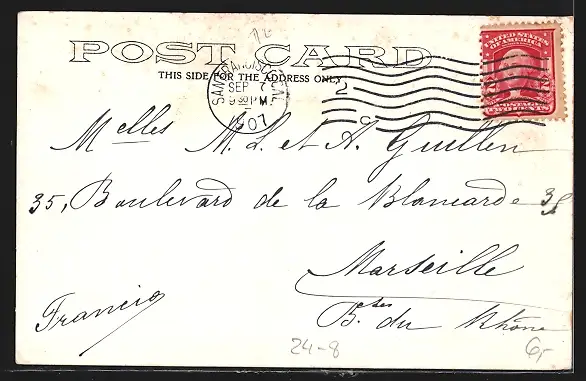 POST CARD
THIS SIDE FOR THE ADDRESS ONLY
SAN FRANCISCO, CAL.
SEP 7
9 30 PM
1907
2
C
UNITED STATES
OF AMERICA
POSTAGE
TWO CENTS
Melles M. L. et A. Guillen
35, Boulevard de la Blancarde 35
Marseille
Francia
B.ches du Rhône
24-8
6,-